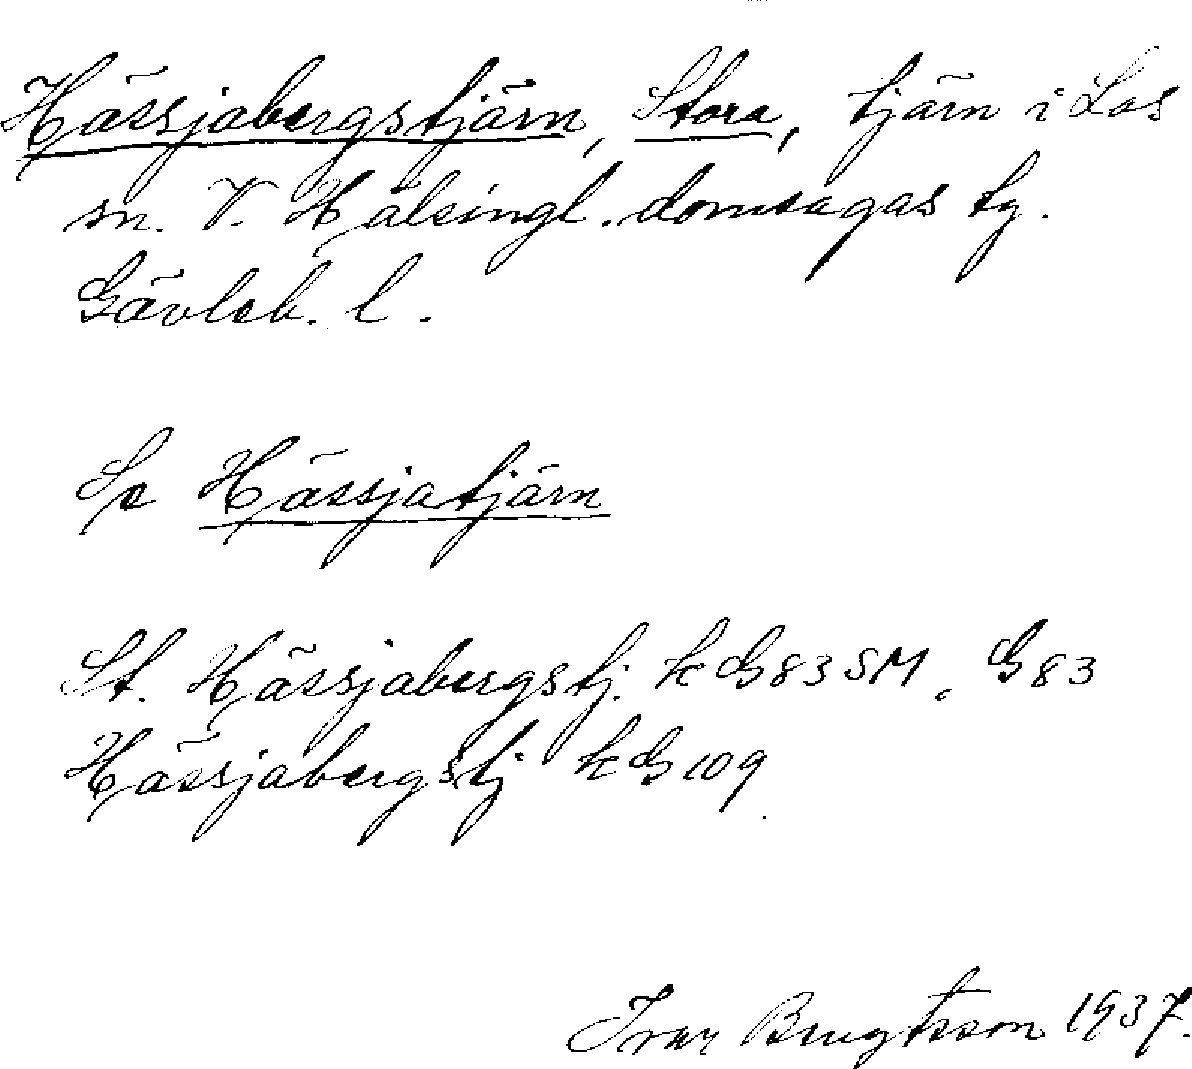 Hässjabergstjärn, Stora, tjärn i Los
sn. V. Hälsingl. domsagas tg.
Gävleb. l.
Se Hässjatjärn
St. Hässjabergstj. kG83SM. G83
Hässjabergstj kG109
Ivar Bengtsson 1937.